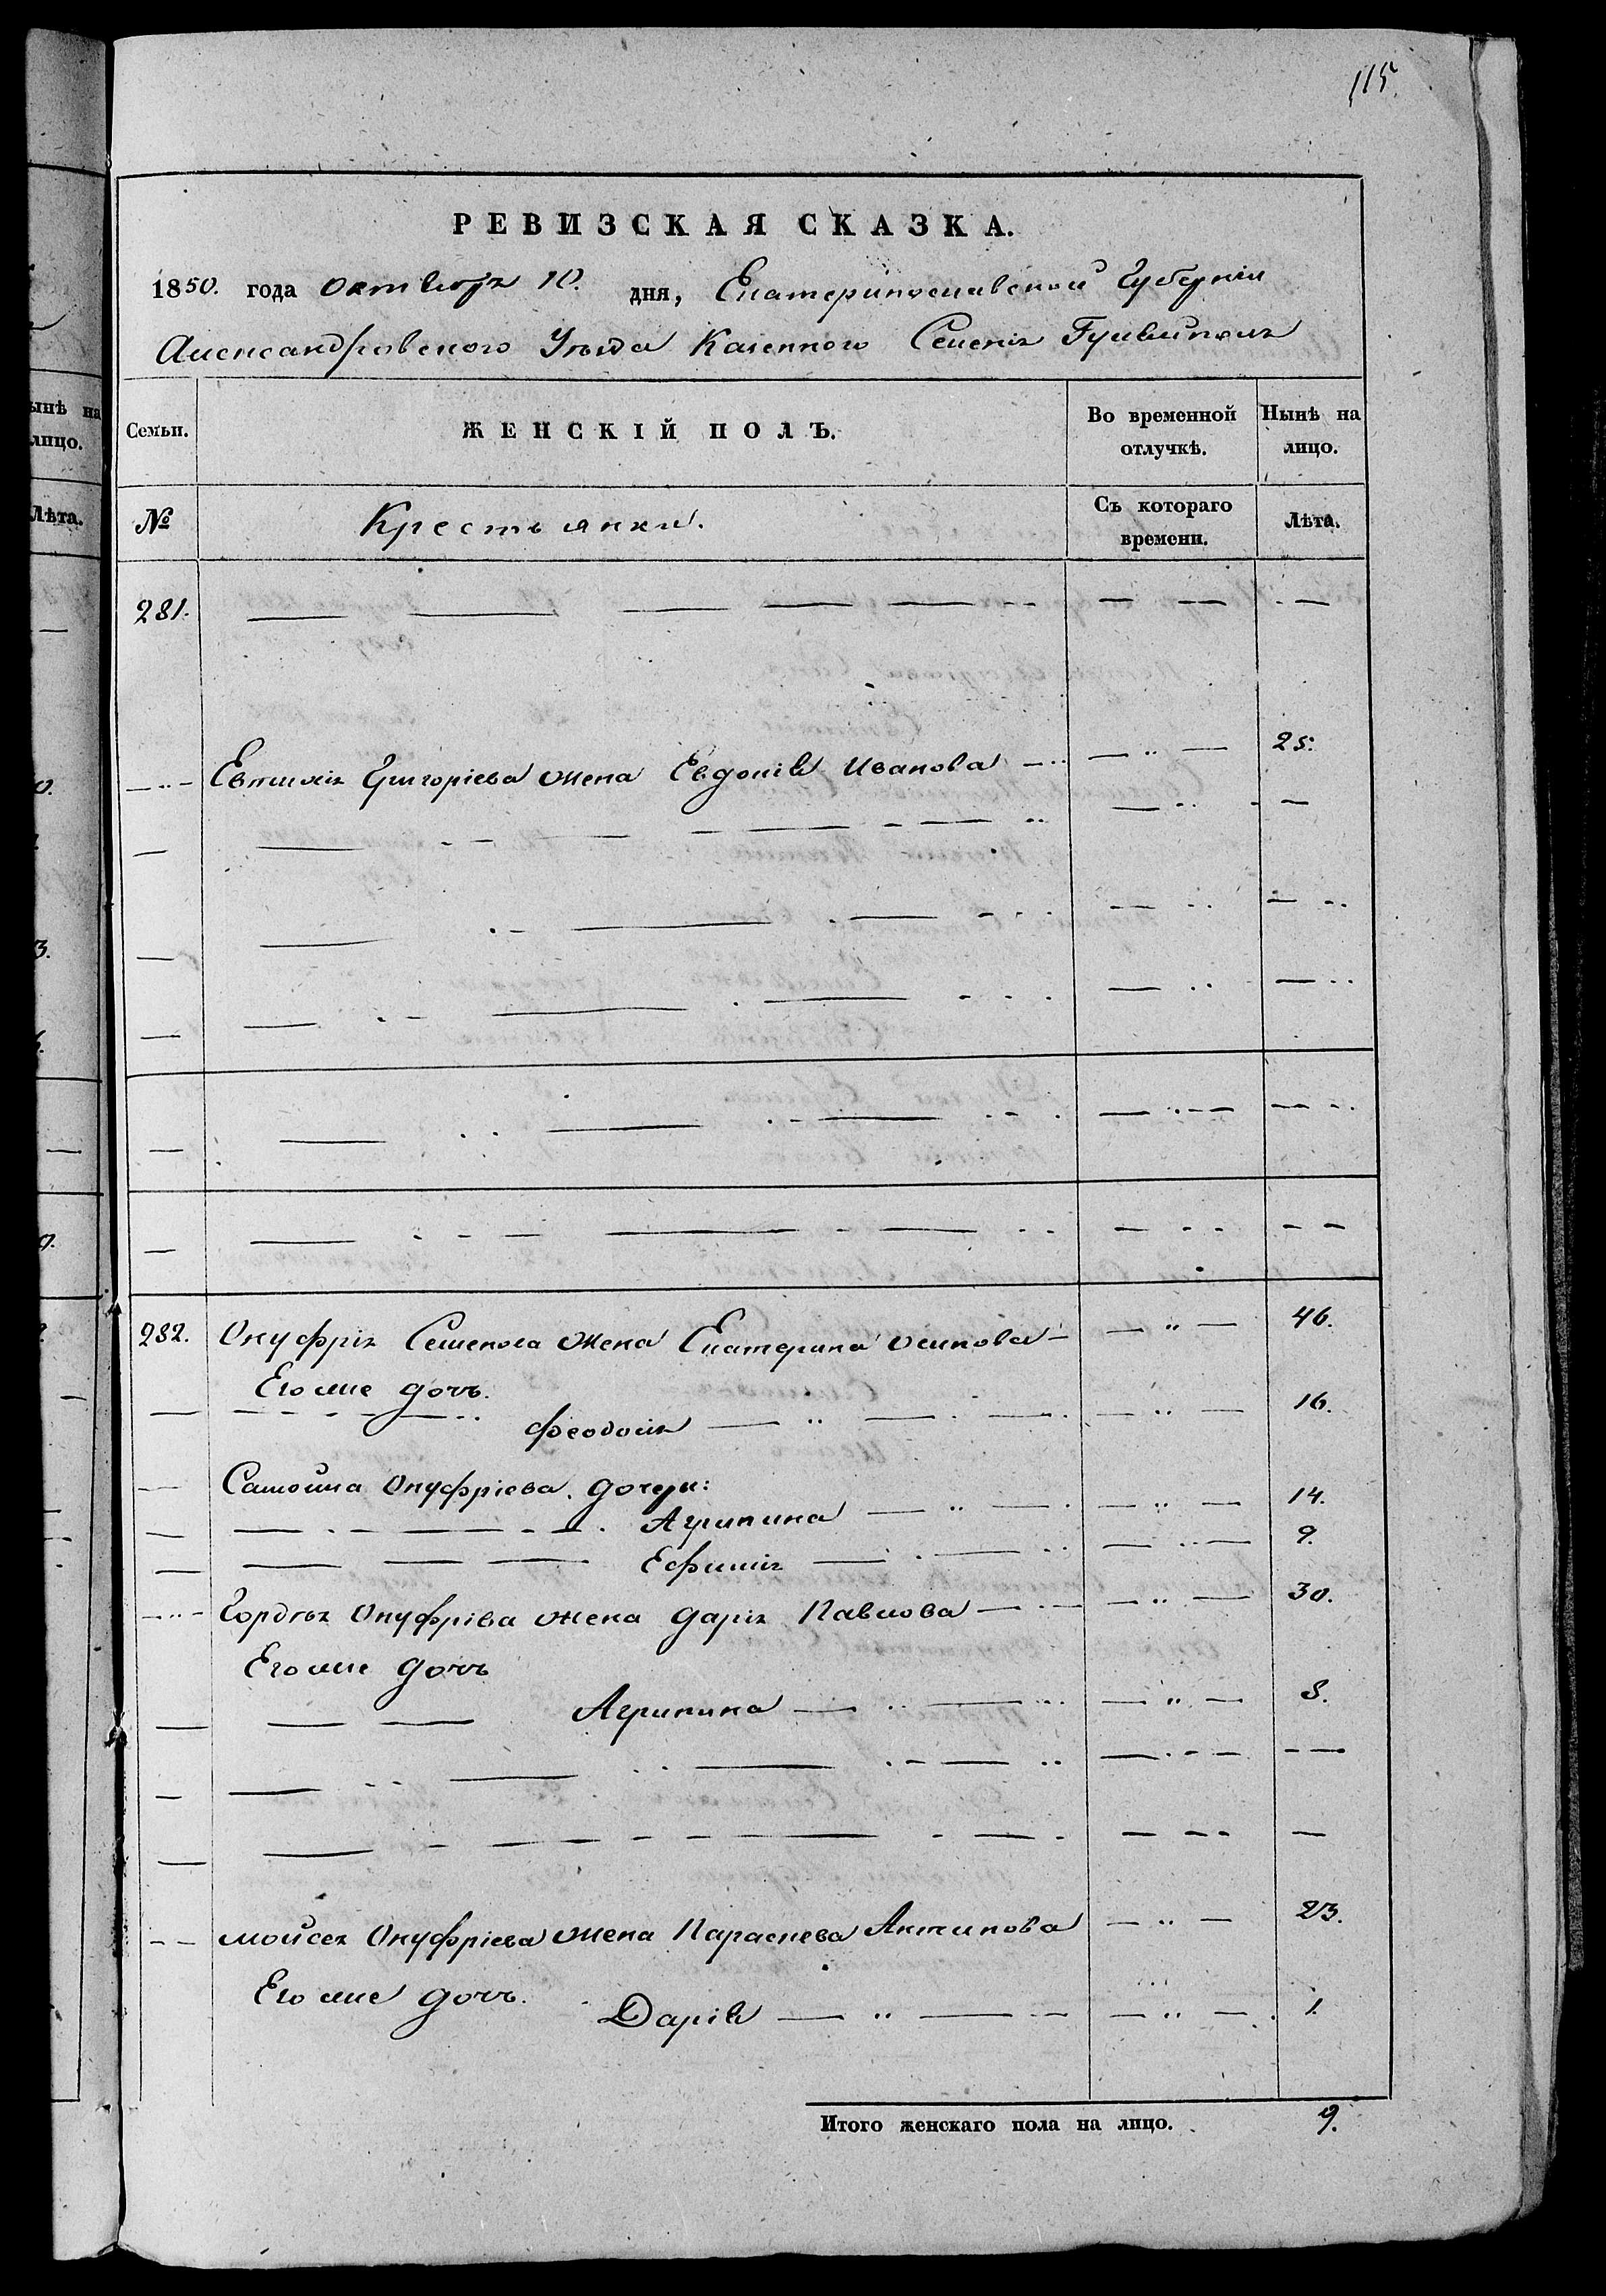 115.
РЕВИЗСКАЯ СКАЗКА.
1850. года октября 10. дня, Екатеринославской Губернiи
Александровского Уѣзда Казенного Селенiя Гуляйполя
Семьи. ЖЕНСКIЙ ПОЛЪ. Во временной отлучкѣ. Нынѣ на лицо.
№ Крестьянки. Съ котораго времени. Лѣта.
281.
Евтихiя Григорiева жена Евдокiя Иванова 25.
282. Онуфрiя Семенова жена Екатерина Осипова 46.
Его же дочь.
Феодосiя 16.
Самойла Онуфрiева дочери:
Агрипина 14.
Ефимiя 9.
Гордѣя Онуфрiва жена Дарiя Павлова 30.
Его же дочь
Агрипина 8.
Мойсея Онуфрiева жена Параскева Антипова 23.
Его же дочь.
Дарiя 1.
Итого женскаго пола на лицо. 9.